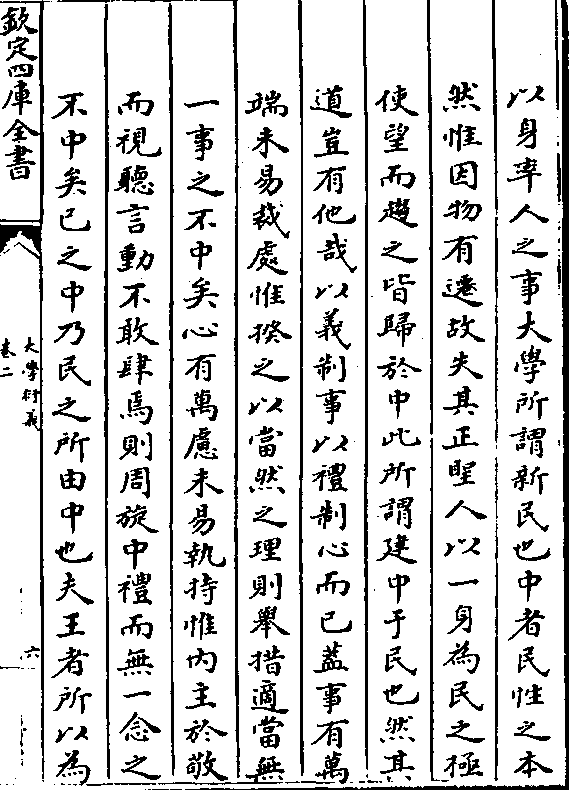 以身率人之事大學所謂新民也中者民性之本
然惟因物有遷故失其正聖人以一身為民之極
使望而趨之皆歸於中此所謂建中于民也然其
道豈有他哉以義制事以禮制心而已蓋事有萬
端未易裁處惟揆之以當然之理則舉措適當無
一事之不中矣心有萬慮未易執持惟内主於敬
而視聽言動不敢肆焉則周旋中禮而無一念之
不中矣已之中乃民之所由中也夫王者所以為
欽定四庫全書
大學衍義
卷二
六